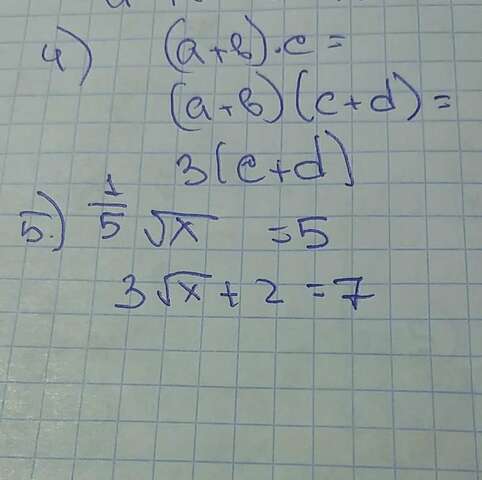 4) (a+b)·c=
(a+b)(c+d)=
3(c+d)
5.) 1/5 √x = 5
3√x + 2 = 7